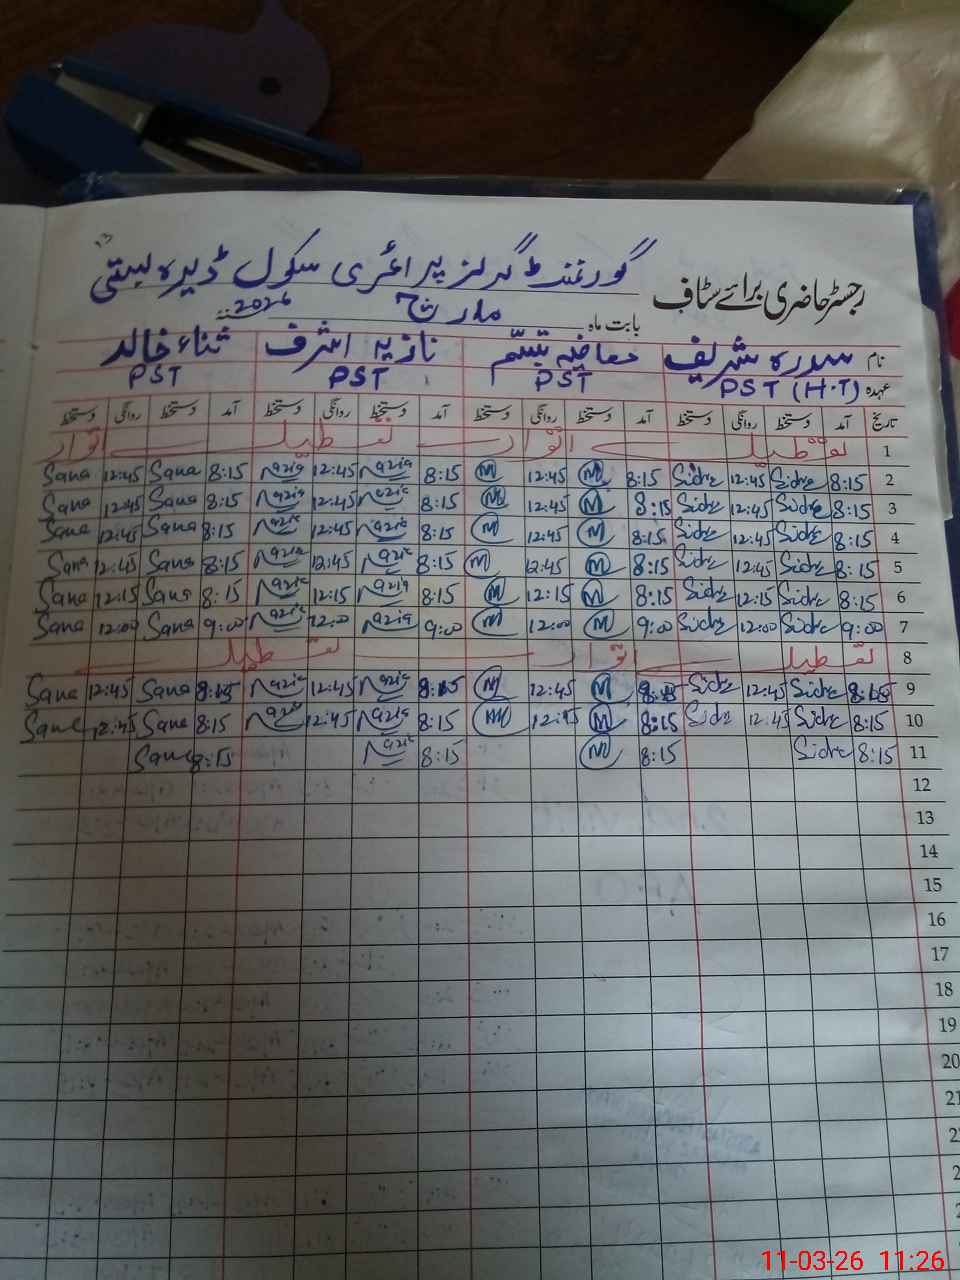 گورنمنٹ گرلز پرائمری سکول ڈیرہ بستی
رجسٹر حاضری برائے سٹاف
بابت ماہ مارچ 2026
نام سدرہ شریف تبسّم نازیہ اشرف ثناء خالد
عہدہ PST (H.T) PST PST PST
تاریخ آمد دستخط روانگی دستخط آمد دستخط روانگی دستخط آمد دستخط روانگی دستخط آمد دستخط روانگی دستخط
1 تعطیل اتوار تعطیل اتوار
2 8:15 Sidre 12:45 Sidre 8:15 M 12:45 M 8:15 Nazia 12:45 Nazia 8:15 Sana 12:45 Sana
3 8:15 Sidre 12:45 Sidre 8:15 M 12:45 M 8:15 Nazia 12:45 Nazia 8:15 Sana 12:45 Sana
4 8:15 Sidre 12:45 Sidre 8:15 M 12:45 M 8:15 Nazia 12:45 Nazia 8:15 Sana 12:45 Sana
5 8:15 Sidre 12:45 Sidre 8:15 M 12:45 M 8:15 Nazia 12:45 Nazia 8:15 Sana 12:45 Sana
6 8:15 Sidre 12:15 Sidre 8:15 M 12:15 M 8:15 Nazia 12:15 Nazia 8:15 Sana 12:15 Sana
7 9:00 Sidre 12:00 Sidre 9:00 M 12:00 M 9:00 Nazia 12:00 Nazia 9:00 Sana 12:00 Sana
8 تعطیل اتوار تعطیل
9 8:15 Sidre 12:45 Sidre 8:15 M 12:45 M 8:15 Nazia 12:45 Nazia 8:15 Sana 12:45 Sana
10 8:15 Sidre 12:45 Sidre 8:15 M 12:45 M 8:15 Nazia 12:45 Nazia 8:15 Sana 12:45 Sana
11 8:15 Sidre 8:15 M 8:15 Nazia 8:15 Sana
12
13
14
15
16
17
18
19
20
21
11-03-26 11:26